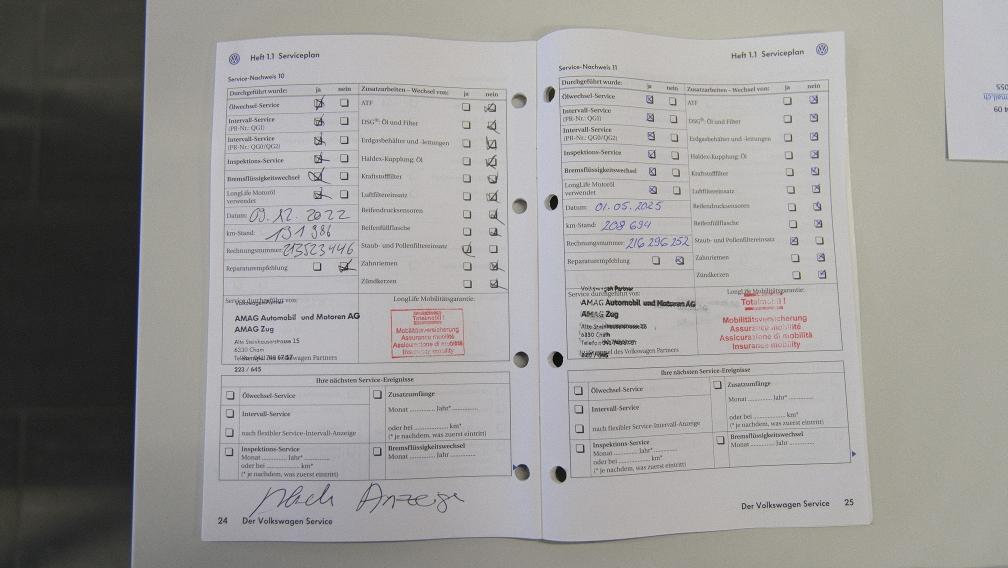 Heft 1.1 Serviceplan
Service-Nachweis 10
Durchgeführt wurde: ja nein
Ölwechsel-Service
Intervall-Service
(PR-Nr.: QG1)
Intervall-Service
(PR-Nr.: QG0/QG2)
Inspektions-Service
Bremsflüssigkeitswechsel
LongLife Motoröl
verwendet
Datum: 09.12.2022
km-Stand: 191 986
Rechnungsnummer: 213523446
Reparaturempfehlung
Zusatzarbeiten – Wechsel von: ja nein
ATF
DSG®: Öl und Filter
Erdgasbehälter und -leitungen
Haldex-Kupplung: Öl
Kraftstofffilter
Luftfiltereinsatz
Reifendrucksensoren
Reifenfüllflasche
Staub- und Pollenfiltereinsatz
Zahnriemen
Zündkerzen
Service durchgeführt von:
AMAG Automobil und Motoren AG
AMAG Zug
Alte Steinhauserstrasse 15
6330 Cham
223 / 645
LongLife Mobilitätsgarantie:
Totalmobil !
Mobilitätsversicherung
Assurance mobilité
Assicurazione di mobilità
Insurance mobility
Ihre nächsten Service-Ereignisse
Ölwechsel-Service
Intervall-Service
nach flexibler Service-Intervall-Anzeige
Inspektions-Service
Monat ............ Jahr* ............
oder bei ............ km*
(* je nachdem, was zuerst eintritt)
Zusatzumfänge
Monat ............ Jahr* ............
oder bei ............ km*
(* je nachdem, was zuerst eintritt)
Bremsflüssigkeitswechsel
Monat ............ Jahr ............
Nach Anzeige
24 Der Volkswagen Service
Heft 1.1 Serviceplan
Service-Nachweis 11
Durchgeführt wurde: ja nein
Ölwechsel-Service
Intervall-Service
(PR-Nr.: QG1)
Intervall-Service
(PR-Nr.: QG0/QG2)
Inspektions-Service
Bremsflüssigkeitswechsel
LongLife Motoröl
verwendet
Datum: 01.05.2025
km-Stand: 208 694
Rechnungsnummer: 216 296 252
Reparaturempfehlung
Zusatzarbeiten – Wechsel von: ja nein
ATF
DSG®: Öl und Filter
Erdgasbehälter und -leitungen
Haldex-Kupplung: Öl
Kraftstofffilter
Luftfiltereinsatz
Reifendrucksensoren
Reifenfüllflasche
Staub- und Pollenfiltereinsatz
Zahnriemen
Zündkerzen
Service durchgeführt von:
AMAG Automobil und Motoren AG
AMAG Zug
Stempel des Volkswagen Partners
LongLife Mobilitätsgarantie:
Totalmobil !
Mobilitätsversicherung
Assurance mobilité
Assicurazione di mobilità
Insurance mobility
Ihre nächsten Service-Ereignisse
Ölwechsel-Service
Intervall-Service
nach flexibler Service-Intervall-Anzeige
Inspektions-Service
Monat ............ Jahr* ............
oder bei ............ km*
(* je nachdem, was zuerst eintritt)
Zusatzumfänge
Monat ............ Jahr* ............
oder bei ............ km*
(* je nachdem, was zuerst eintritt)
Bremsflüssigkeitswechsel
Monat ............ Jahr ............
Der Volkswagen Service 25